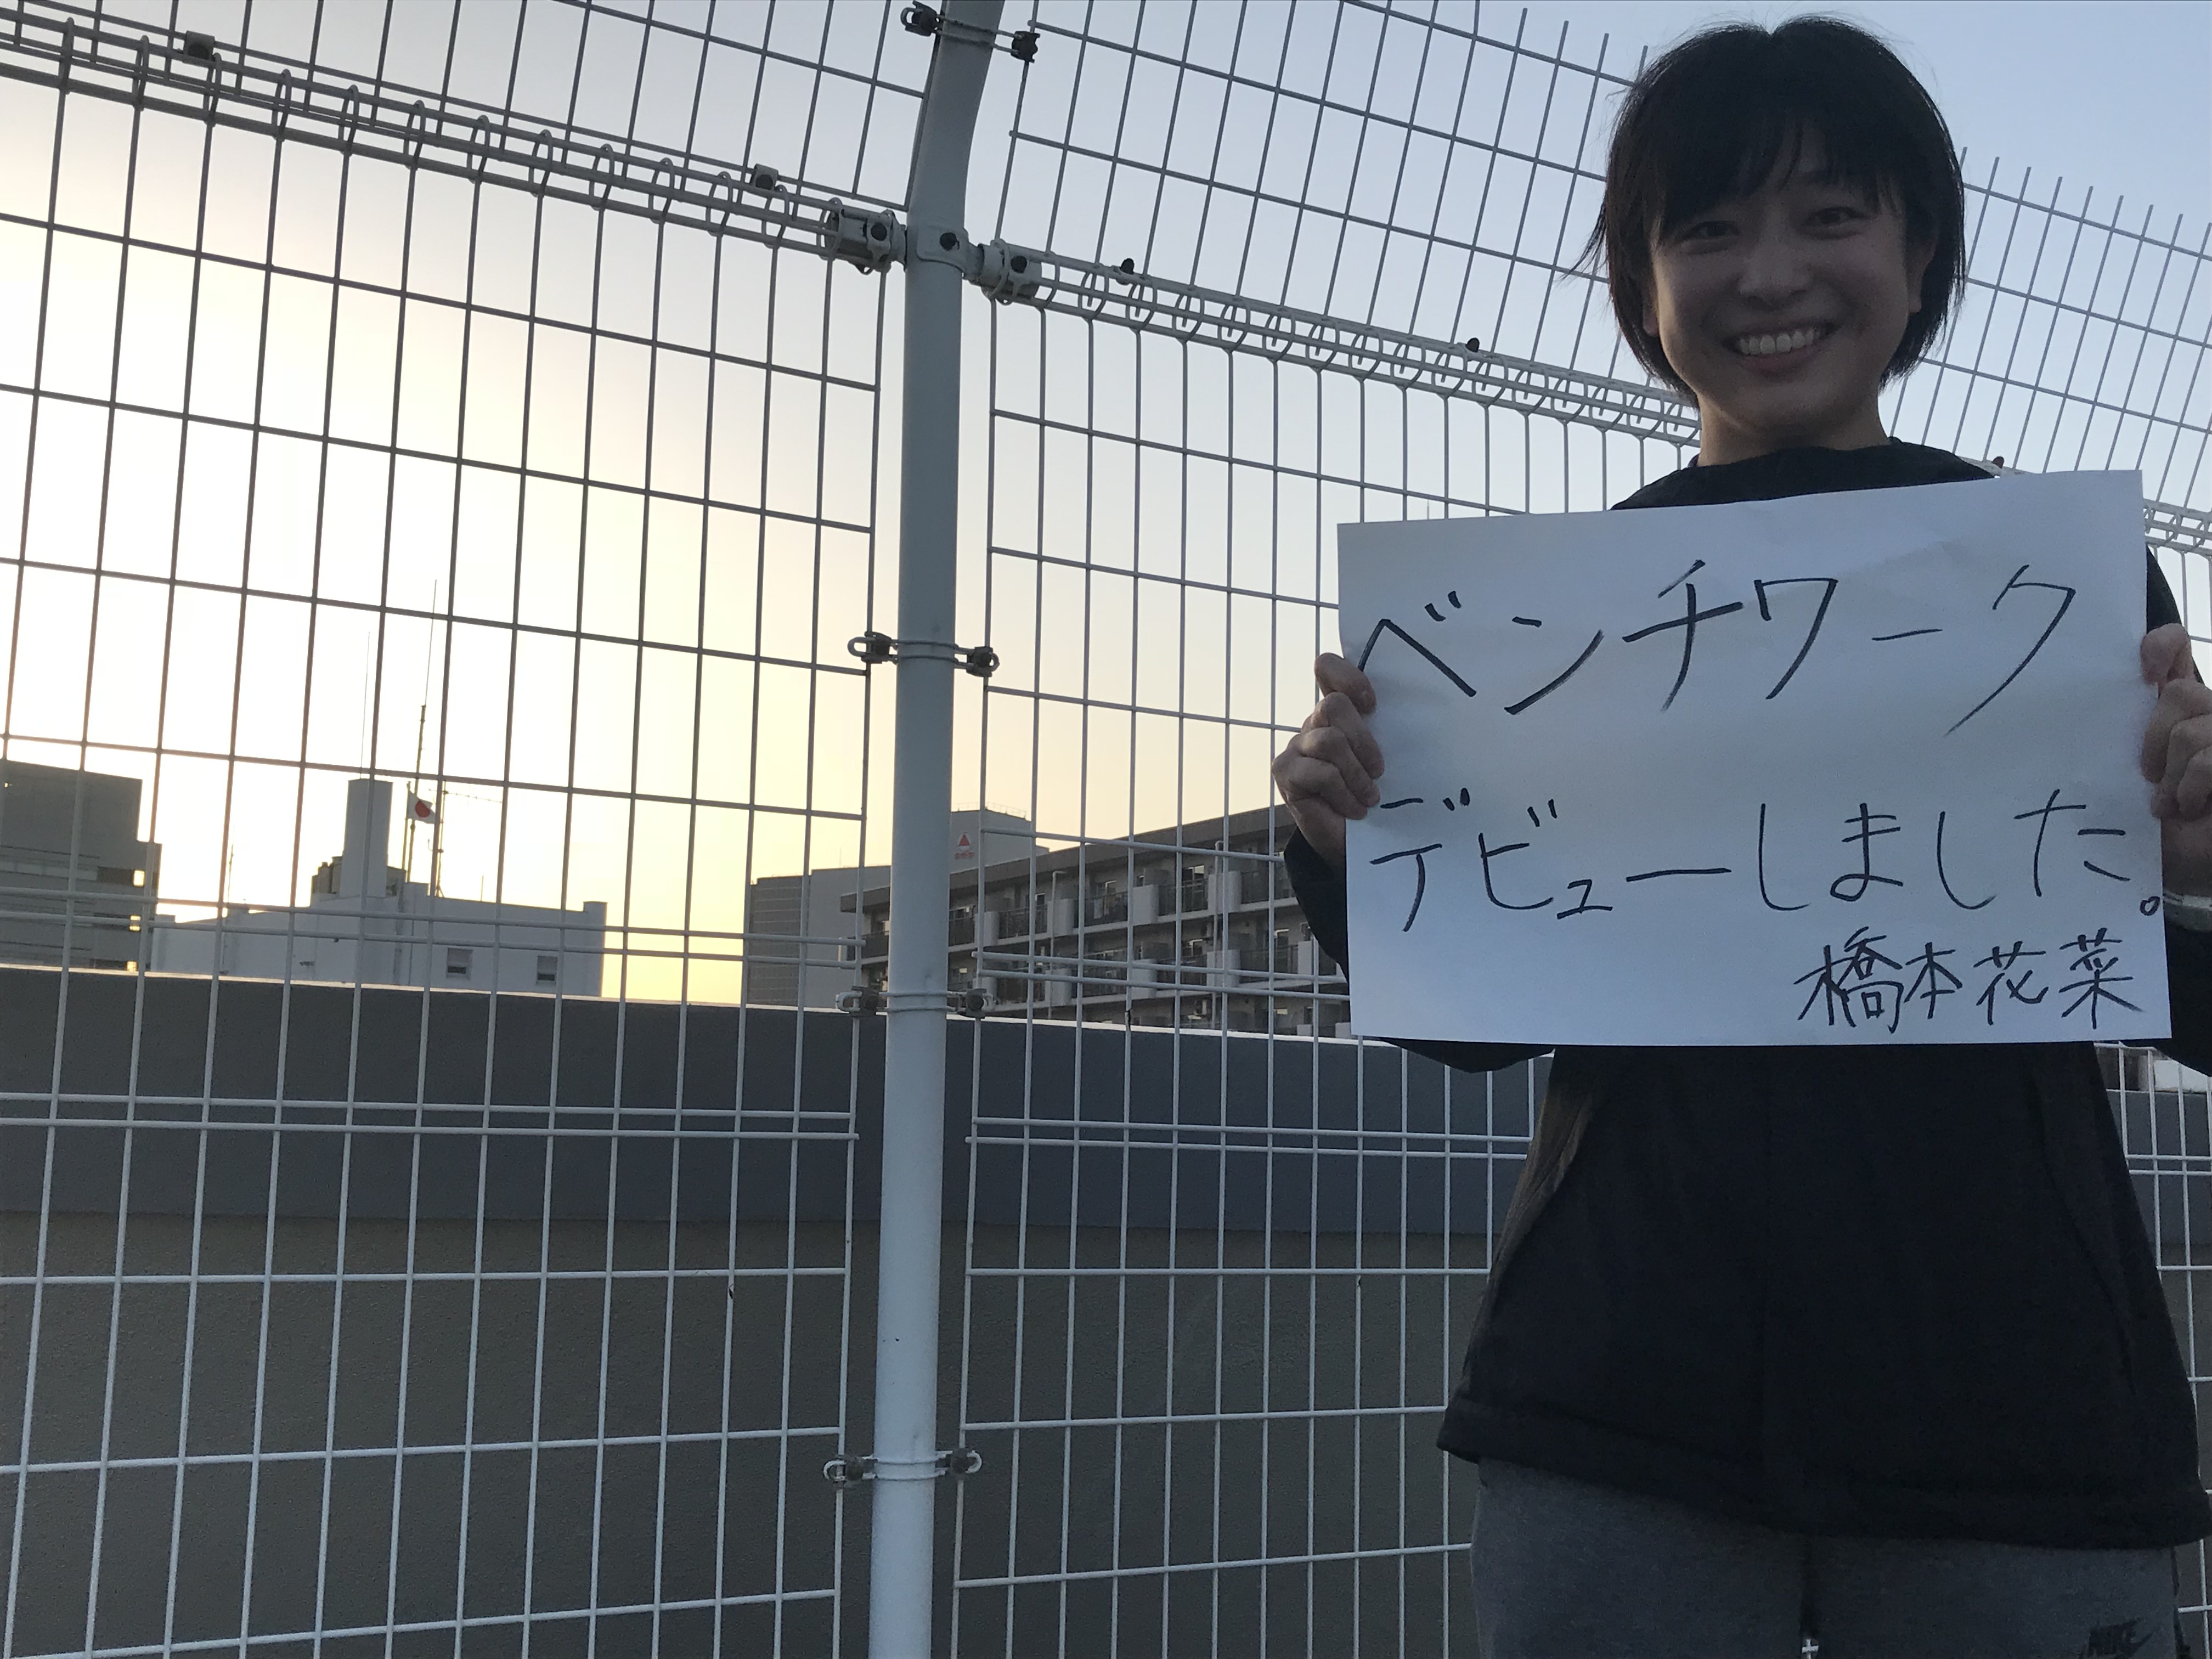 ベンチワーク
デビューしました。
橋本花菜
NIKE